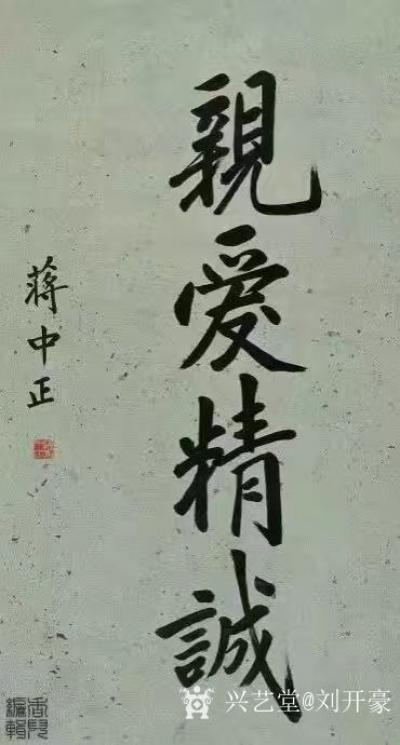 親爱精誠
蔣中正
兴艺堂@刘开豪